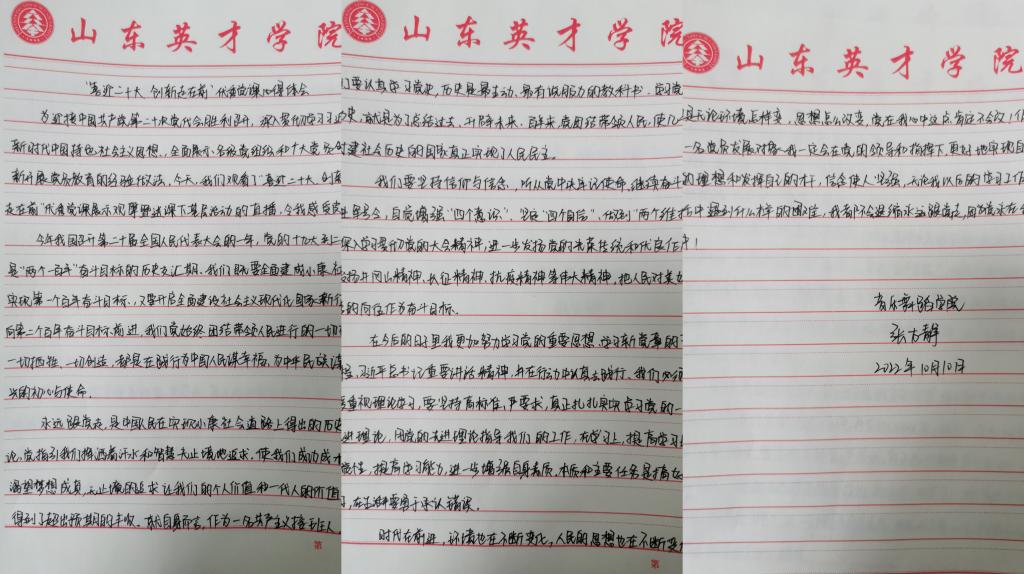 山东英才学院
"喜迎二十大 创新走在前"优秀党课心得体会
为迎接中国共产党第二十次党代会胜利召开,深入学习习近
新时代中国特色社会主义思想,全面展示各级党组织和广大党员创
新开展党员教育的经验做法,今天,我们观看了"喜迎二十大,创新
走在前"优秀党课展示观摩暨送课下基层活动的直播,令我感受
今年我国召开第二十届全国人民代表大会的一年,党的十九大至二十
是"两个一百年"奋斗目标的历史交汇期。我们既要全面建成小康社
实现第一个百年奋斗目标,又要开启全面建设社会主义现代化国家新征
向第二个百年奋斗目标前进,我们党始终团结带领人民进行的一切
一切牺牲、一切创造,都是在践行为中国人民谋幸福,为中华民族谋
兴的初心与使命。
永远跟党走,是中国人民在实现小康社会道路上得出的历史
论,党指引我们挥洒着汗水和智慧无止境地追求,使我们成功成
渴望梦想成真,无止境的追求让我们的个人价值和一代人的价值
得到了超出预期的丰收。就自身而言,作为一名共产主义接班人,
第
山东英才学院
们要认真学习党史,历史是最生动、最有说服力的教科书。学习党
史,就是为了总结过去,开辟未来。百年来,党团结带领人民,使几
建社会历史后的国家真正实现了人民民主。
我们要坚持信仰与信念,听从党中央牢记使命,继续奋斗
自觉增强"四个意识"、坚定"四个自信"、做到"两个维
深入学习贯彻党的大会精神,进一步发扬党的光荣传统和优良作
扬井冈山精神、长征精神、抗疫精神等伟大精神,把人民对美
的向往作为奋斗目标。
在今后的日子里我更加努力学习党的重要思想,学习新党章的
习近平总书记重要讲话精神,并在行动中认真去践行。我们必须
重视理论学习,要坚持高标准,严要求,真正扎扎实实学习党的一
进理论,用党的先进理论指导我们的工作,在学习上,提高学习
觉性,提高学习能力,进一步增强自身素质,本质和主要任务是搞好
了,在生活中要勇于承认错误。
时代在前进,环境也在不断变化,人民的思想也在不断变
第
山东英才学院
是无论环境怎样变,思想怎么改变,党在我心中这点肯定不会改!
一名党员发展对象,我一定会在党的领导和指挥下,更好地实现自
的理想和发挥自己的才干,信念使人坚强,无论我以后的学习工作
中遇到什么样的困难,我都不会退缩永远跟党走,因为党永在
!
音乐舞蹈学院
张方静
2022年10月10日